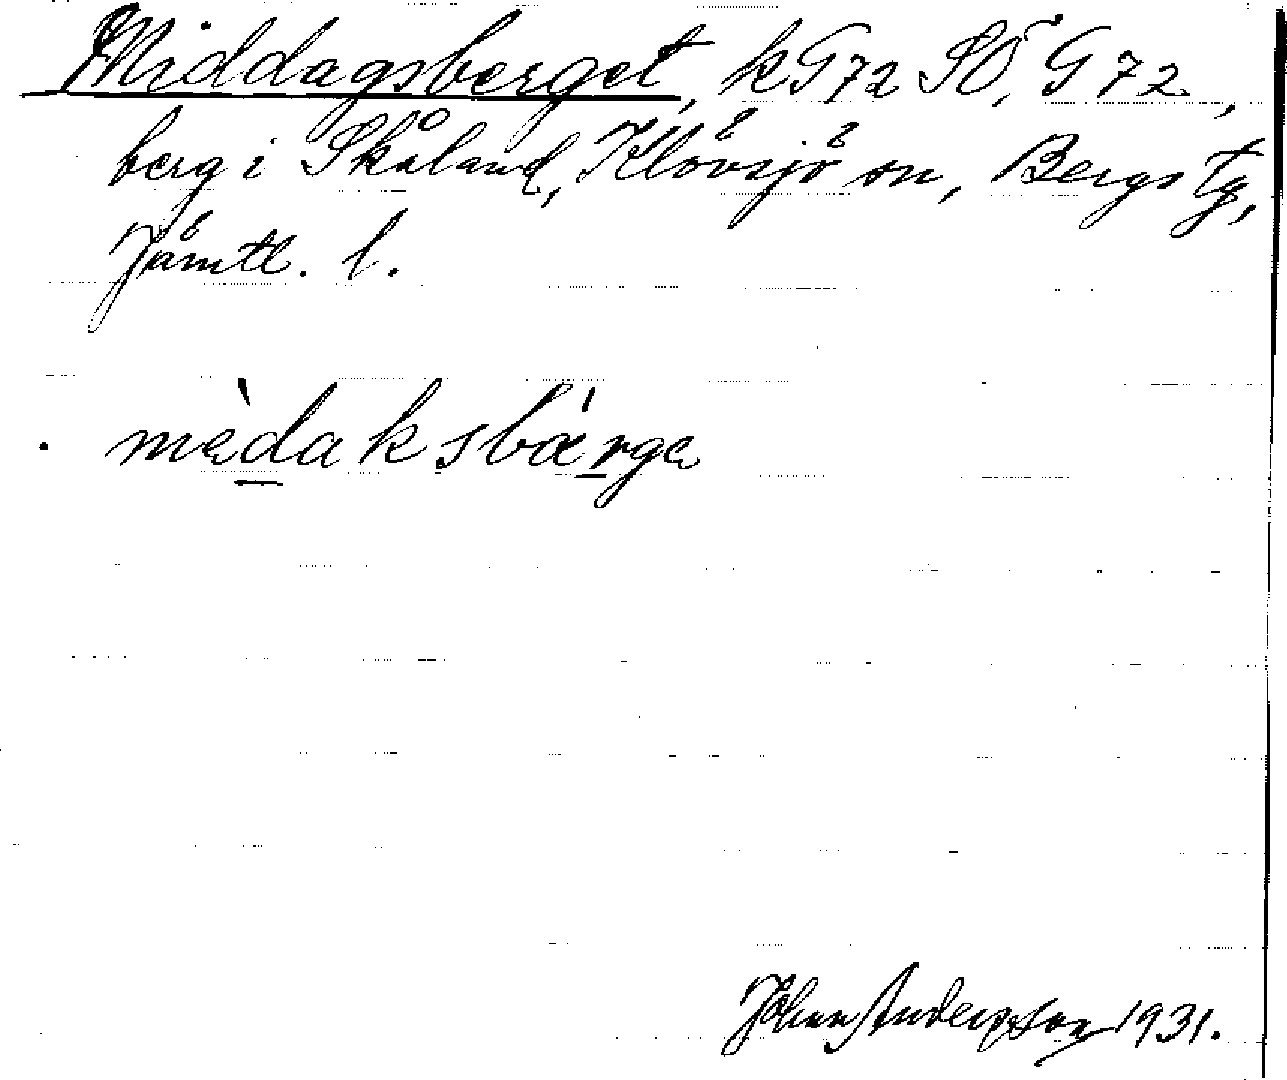 Middagsberget, kG72 SO, G 72,
berg i Skåland, Klövsjö sn, Bergs tg,
Jämtl. l.
mèdaksbärga
Johan Andersson 1931.